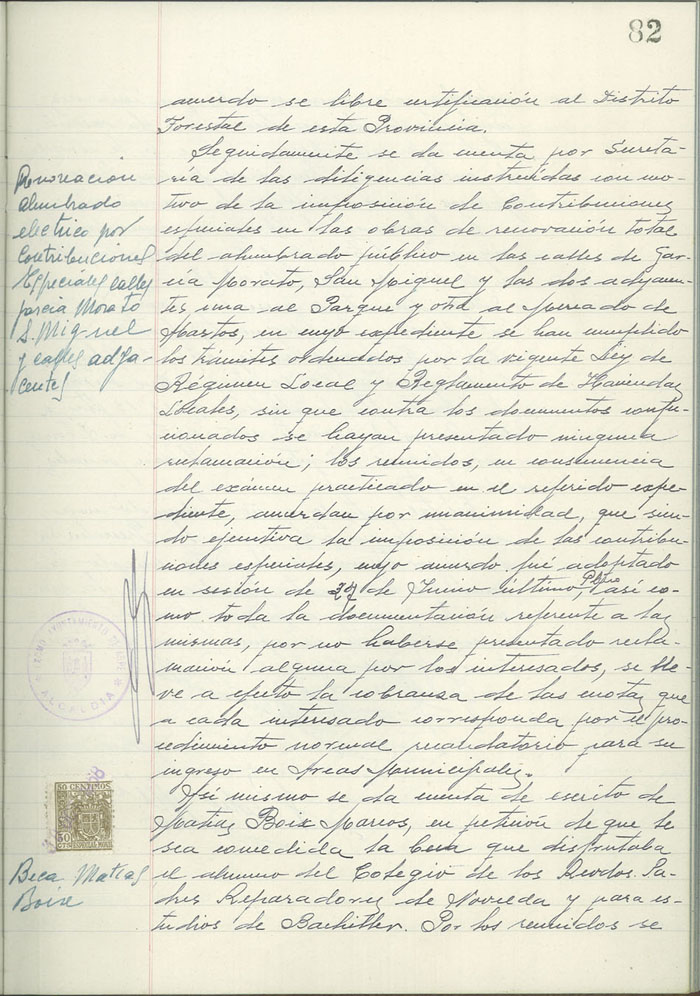 82
acuerdo se libre certificación al Distrito
Forestal de esta Provincia.
Seguidamente se da cuenta por Secreta-
ría de las diligencias instruidas con mo-
tivo de la imposición de Contribuciones
especiales en las obras de renovación total
del alumbrado público en las calles de Gar-
cía Morato, San Miguel y las dos adyacen-
tes, una al Parque y otra al Mercado de
Abastos, en cuyo expediente se han cumplido
los trámites ordenados por la vigente Ley de
Régimen Local y Reglamento de Haciendas
Locales, sin que contra los documentos confec-
cionados se hayan presentado ninguna
reclamación; los reunidos, en consecuencia
del exámen practicado en el referido expe-
diente, acuerdan por unanimidad, que sien-
do ejecutiva la imposición de las contribu-
ciones especiales, cuyo acuerdo fué adoptado
en sesión de 27 de Junio último, así co-
mo toda la documentación referente a las
mismas, por no haberse presentado recla-
mación alguna por los interesados, se lle-
ve a efecto la cobranza de las cuotas que
a cada interesado corresponda por el pro-
cedimiento normal recaudatorio para su
ingreso en Arcas Municipales.
Así mismo se da cuenta de escrito de
Matías Boix Marcos, en petición de que le
sea concedida la beca que disfrutaba
el alumno del Colegio de los Rvdos. Pa-
dres Reparadores de Novelda y para es-
tudios de Bachiller. Por los reunidos se
Renovación
alumbrado
electrico por
Contribuciones
Especiales calles
Garcia Morato
S. Miguel
y calles adya-
centes
ALCALDIA
50 CENTIMOS
50
CTS ESPECIAL MOVIL
Beca Matias
Boix